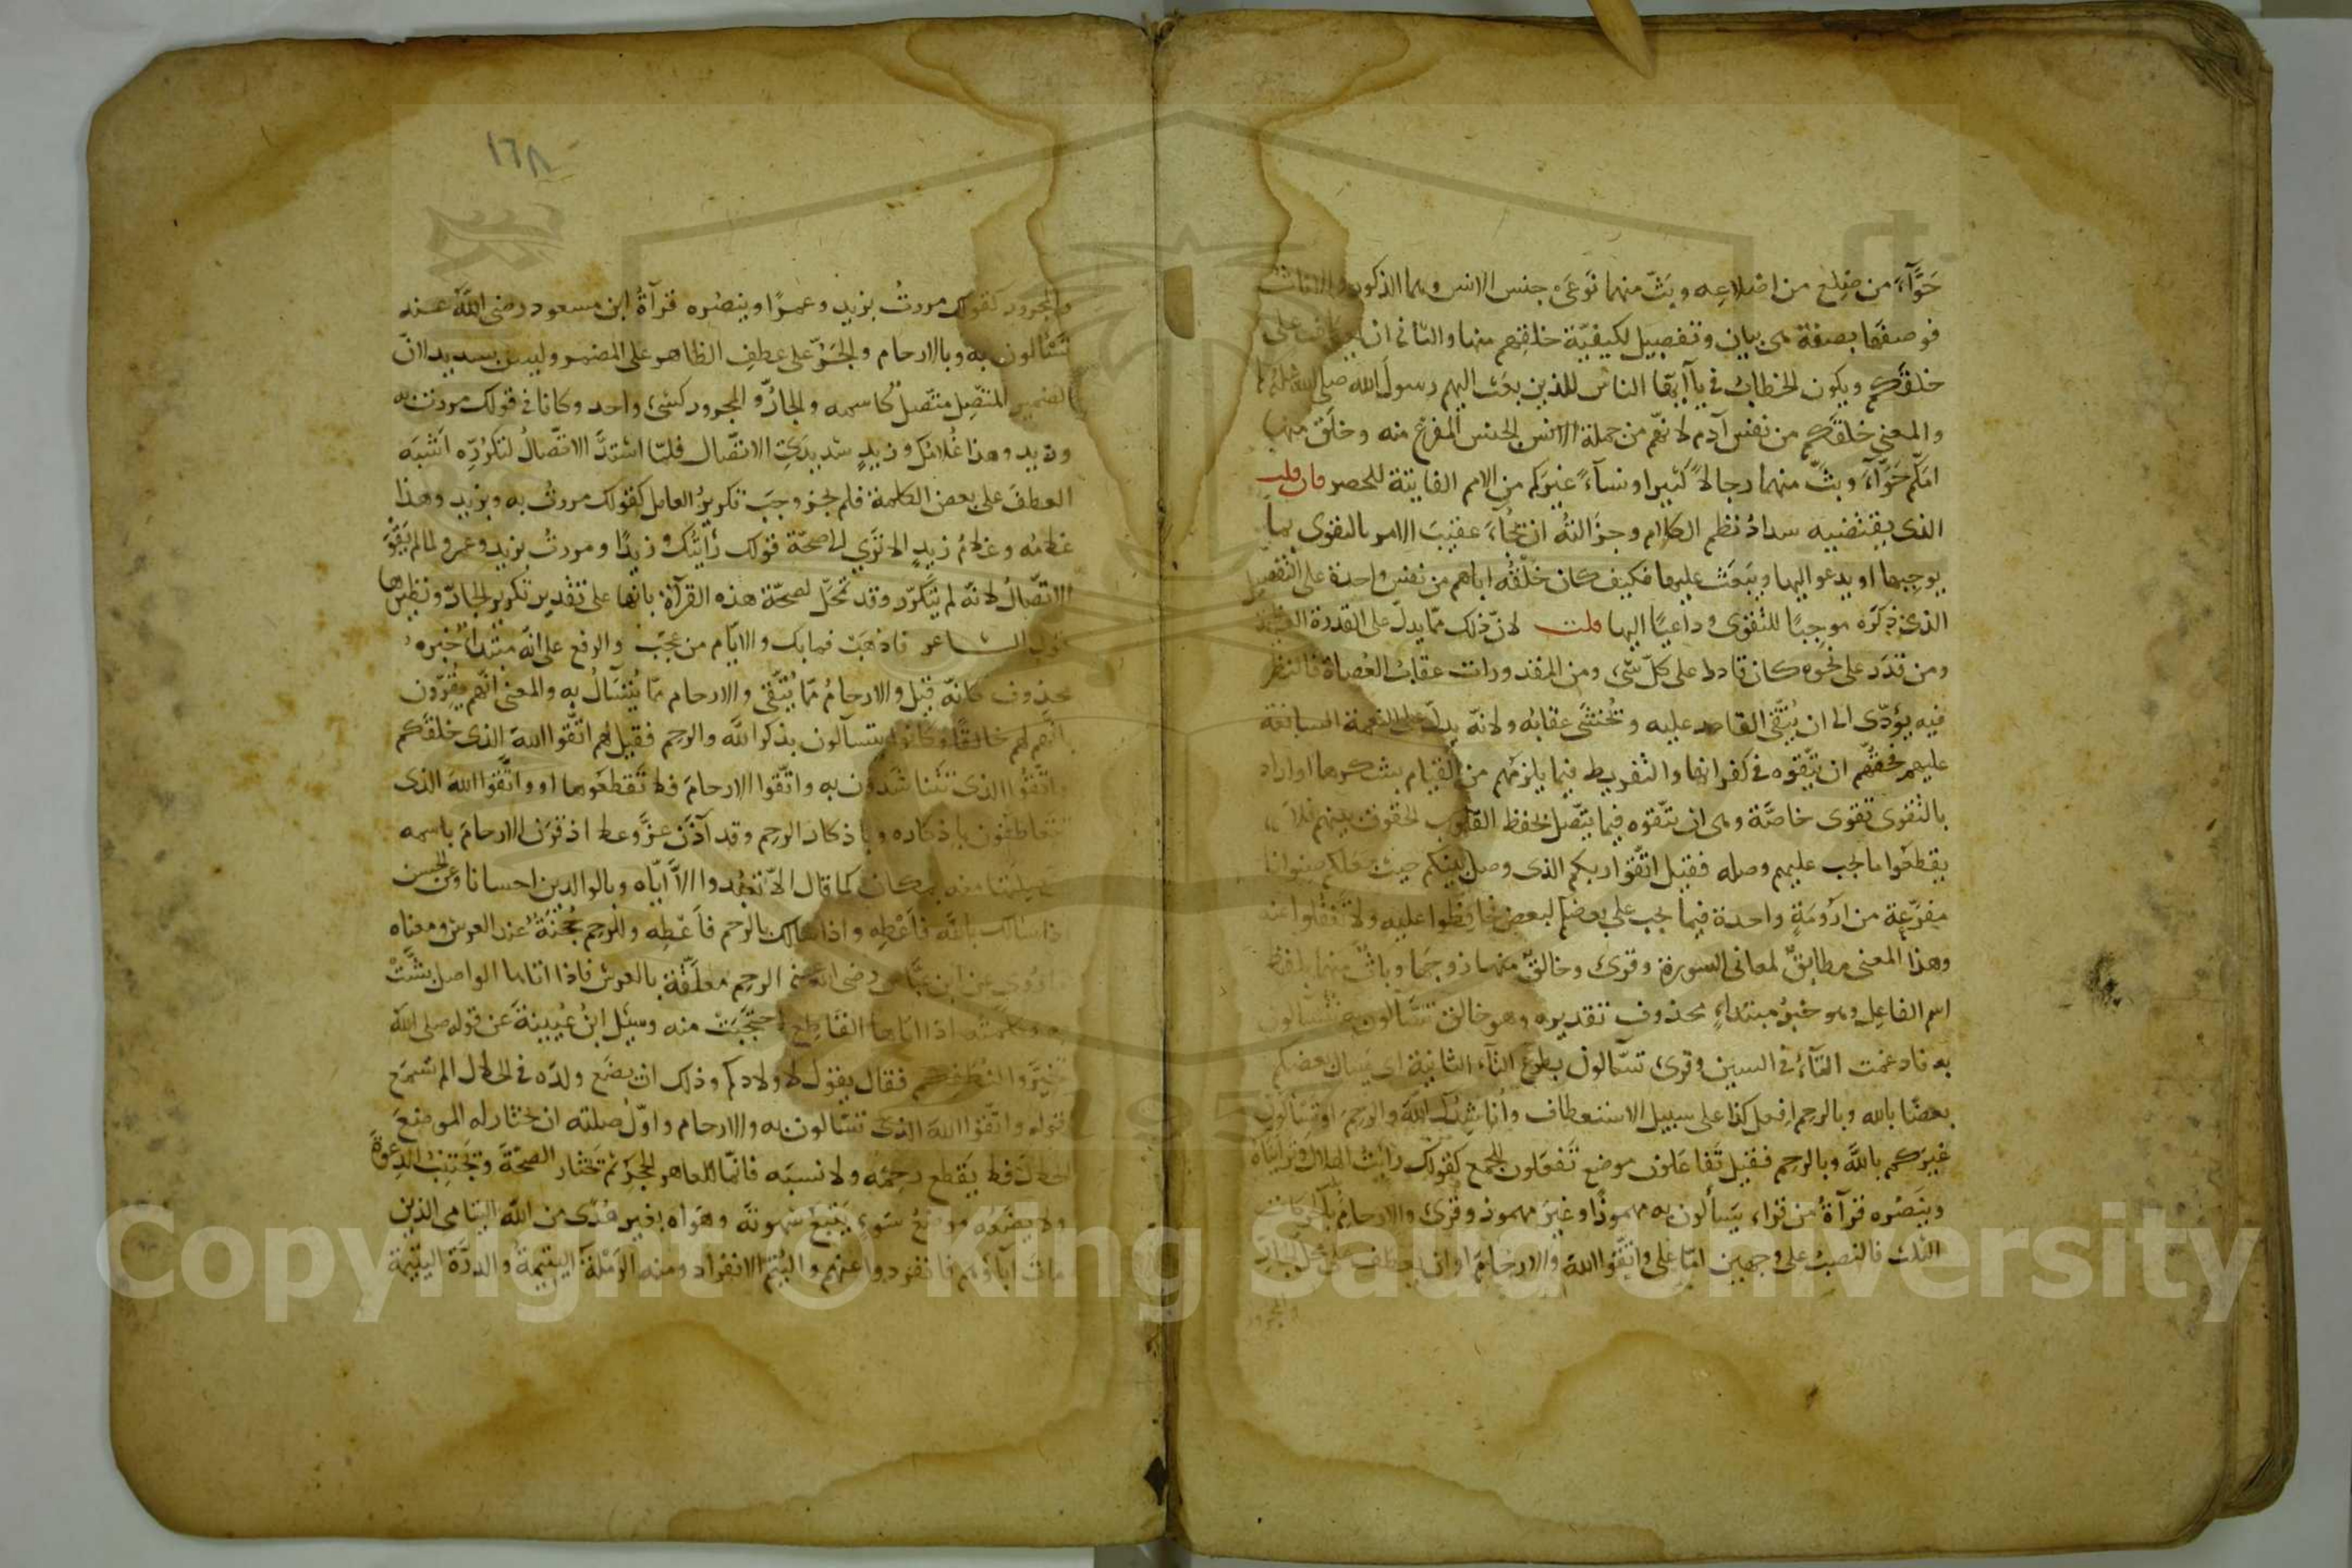 حَوَّآءَ من ضِلَع من اضلاعِه وبَثّ منهما نَوعَىْ جنس الانس وهما الذكور والاناث
فوصفَها بصفة هى بيان وتفصيل لكيفيّة خلقِهم منها والثانى ان يعطف على
خلقَكم ويكون الخطابُ فى يآ ايّها الناسُ للذين بعث اليهم رسولَ الله صلى الله
والمعنى خلقَكم من نفس آدم لانهم من جملة الانس الجنس المفرّع منه وخلَق منها
امَّكم حَوَّآءَ وبثّ منهما رجالاً كثيرا ونسآءً غيرَكم من الامم الفايتة للحصر فان قلت
الذى يقتضيه سدادُ نظم الكلام وجزالتُه ان يُجآءَ عقيبَ الامر بالتقوى بما
يوجبها او يدعو اليها ويبعَث عليها فكيف كان خلْقُه اياهم من نفس واحدة على التفصيل
الذى ذكَرَه موجِبًا للتقوى وداعيًا اليها قلت لانّ ذلك ممّا يدلّ على القدرة العظيمة
ومن قدَر على نحوه كان قادرا على كلّ شئ ومن المقدورات عقابُ العُصاة فالنظر
فيه يؤدّى الى ان يُتّقَى القادر عليه ويُخشَى عقابُه ولانّه يدلّ على النعمة السابغة
عليهم فحقّهم ان يتّقوه فى كفرانها والتفريط فيما يلزمهم من القيام بشكرها او اراد
بالتقوى تقوى خاصّة وهى ان يتّقوه فيما يتّصل بحفظ الحقوق بينهم فلا
يقطعوا ما يجب عليهم وصله فقيل اتّقوا ربكم الذى وصل بينكم حيث جعلكم صنوانا
مفرّعة من ارُومَةٍ واحدة فيما يجب على بعضكم لبعض فحافظوا عليه ولا تغفُلوا عنه
وهذا المعنى مطابقٌ لمعانى السورة وقرئ وخالقٌ منها زوجها وباثٌّ منهما بلفظ
اسم الفاعل وهو خبرُ مبتداءٍ محذوف تقديره وهو خالق تسّآلون به تتسآلون
به فادغمت التآءُ فى السين وقرئ تسآلون بطرح التآء الثانية اى يسال بعضكم
بعضًا بالله وبالرحم افعل كذا على سبيل الاستعطاف وأناشِدُك اللهَ والرحمَ او تسالون
غيرَكم بالله وبالرحم فقيل تَفاعَلون موضع تَفعَلون للجمع كقولك رايتُ الهلال وترايَناه
وينصُره قرآةُ من قراء تَسألون به مهموزًا وغيرَ مهموز وقرئ والارحامُ بالحركات
الثلث فالنصبُ على وجهين امّا على واتّقوا اللهَ والارحامَ او ان يعطف على محل الجارّ
والمجرور
١٦٨
والمجرور كقولك مررتُ بزيد وعمرًا وينصُره قرآةُ ابن مسعود رضى اللهُ عنه
تَسْألون به وبالارحام والجَرُّ على عطفِ الظاهر على المضمر وليس بسديد لانّ
الضمير المتّصِل متّصلٌ كاسمه والجارُّ والمجرور كشئ واحد وكانا فى قولك مررت به
وزيد وهذا غُلامُك وزيدٍ شديدَىِ الاتّصال فلمّا اشتدَّ الاتّصالُ لتكرُّرِه اَشبَه
العطفَ على بعض الكلمة فلم يجز ووجَب تكريرُ العامل كقولك مررتُ به وبزيد وهذا
غلامُه وغلامُ زيدٍ الا تَرى الى صحّة قولك رأيتُك وزيدًا ومررتُ بزيد وعمرو لما لم يَقْوَ
الاتّصالُ لانّه لم يتكَرّر وقد تمُحّل لصحّة هذه القرآة بانّها على تقدير تكرير الجارّ ونظيرها
قول الشاعر فاذهَبْ فما بك والايّام من عجَب والرفع على انّه مبتدأٌ خبره
محذوف كانّه قيل والارحامُ ممّا يُتّقى والارحام ممّا يُتسآلُ به والمعنى انّهم يُقِرّون
انّهم لهم خالقًا وكانوا يتسآلون بذكر الله والرحم فقيل لهم اتّقوا اللهَ الذى خلقَكم
واتّقوا الذى تتناشَدون به واتّقوا الارحامَ فلا تَقطَعوها او واتّقوا اللهَ الذى
تتعاطفون باذكاره وباذكار الرحم وقد آذَن عزّ وعلا اذ قرَن الارحامَ باسمه
منه بمكان كما قال الاّ تعبدوا الاّ ايّاه وبالوالدين احسانا وعن الحسن
اذا سالك بالله فأعطِه واذا سالك بالرحم فأعطِه وللرحم حُجْنَةٌ عند العرش ومعناه
ما رُوى عن ابن عبّاس رضى الله عنه الرحم معلّقة بالعرش فاذا اتاها الواصل بَشّتْ
به وكلّمته واذا اتاها القاطع احتجَبَتْ منه وسُئل ابنُ عُيَينةَ عن قوله صلى الله
تخيّروا لنُطَفِكم فقال يقول لاولادكم وذلك ان يضَع ولدَه فى الحلال الم تسمَع
قوله واتّقوا اللهَ الذى تسّالون به والارحام واوّل صلته ان يختار له الموضعَ
الحلال فلا يَقطع رحِمَه ولا نسبَه فانّما للعاهر الحجر ثم يختار الصحّة ويجتنب الدعوةَ
ولا يضَعه موضعَ سَوءٍ يتّبع شهوتَه وهواه بغير هُدًى من الله اليتامى الذين
مات آباؤهم فانفردوا عنهم واليُتم الانفراد ومنه الرَمْلةُ اليتيمةُ والدرّة اليتيمة